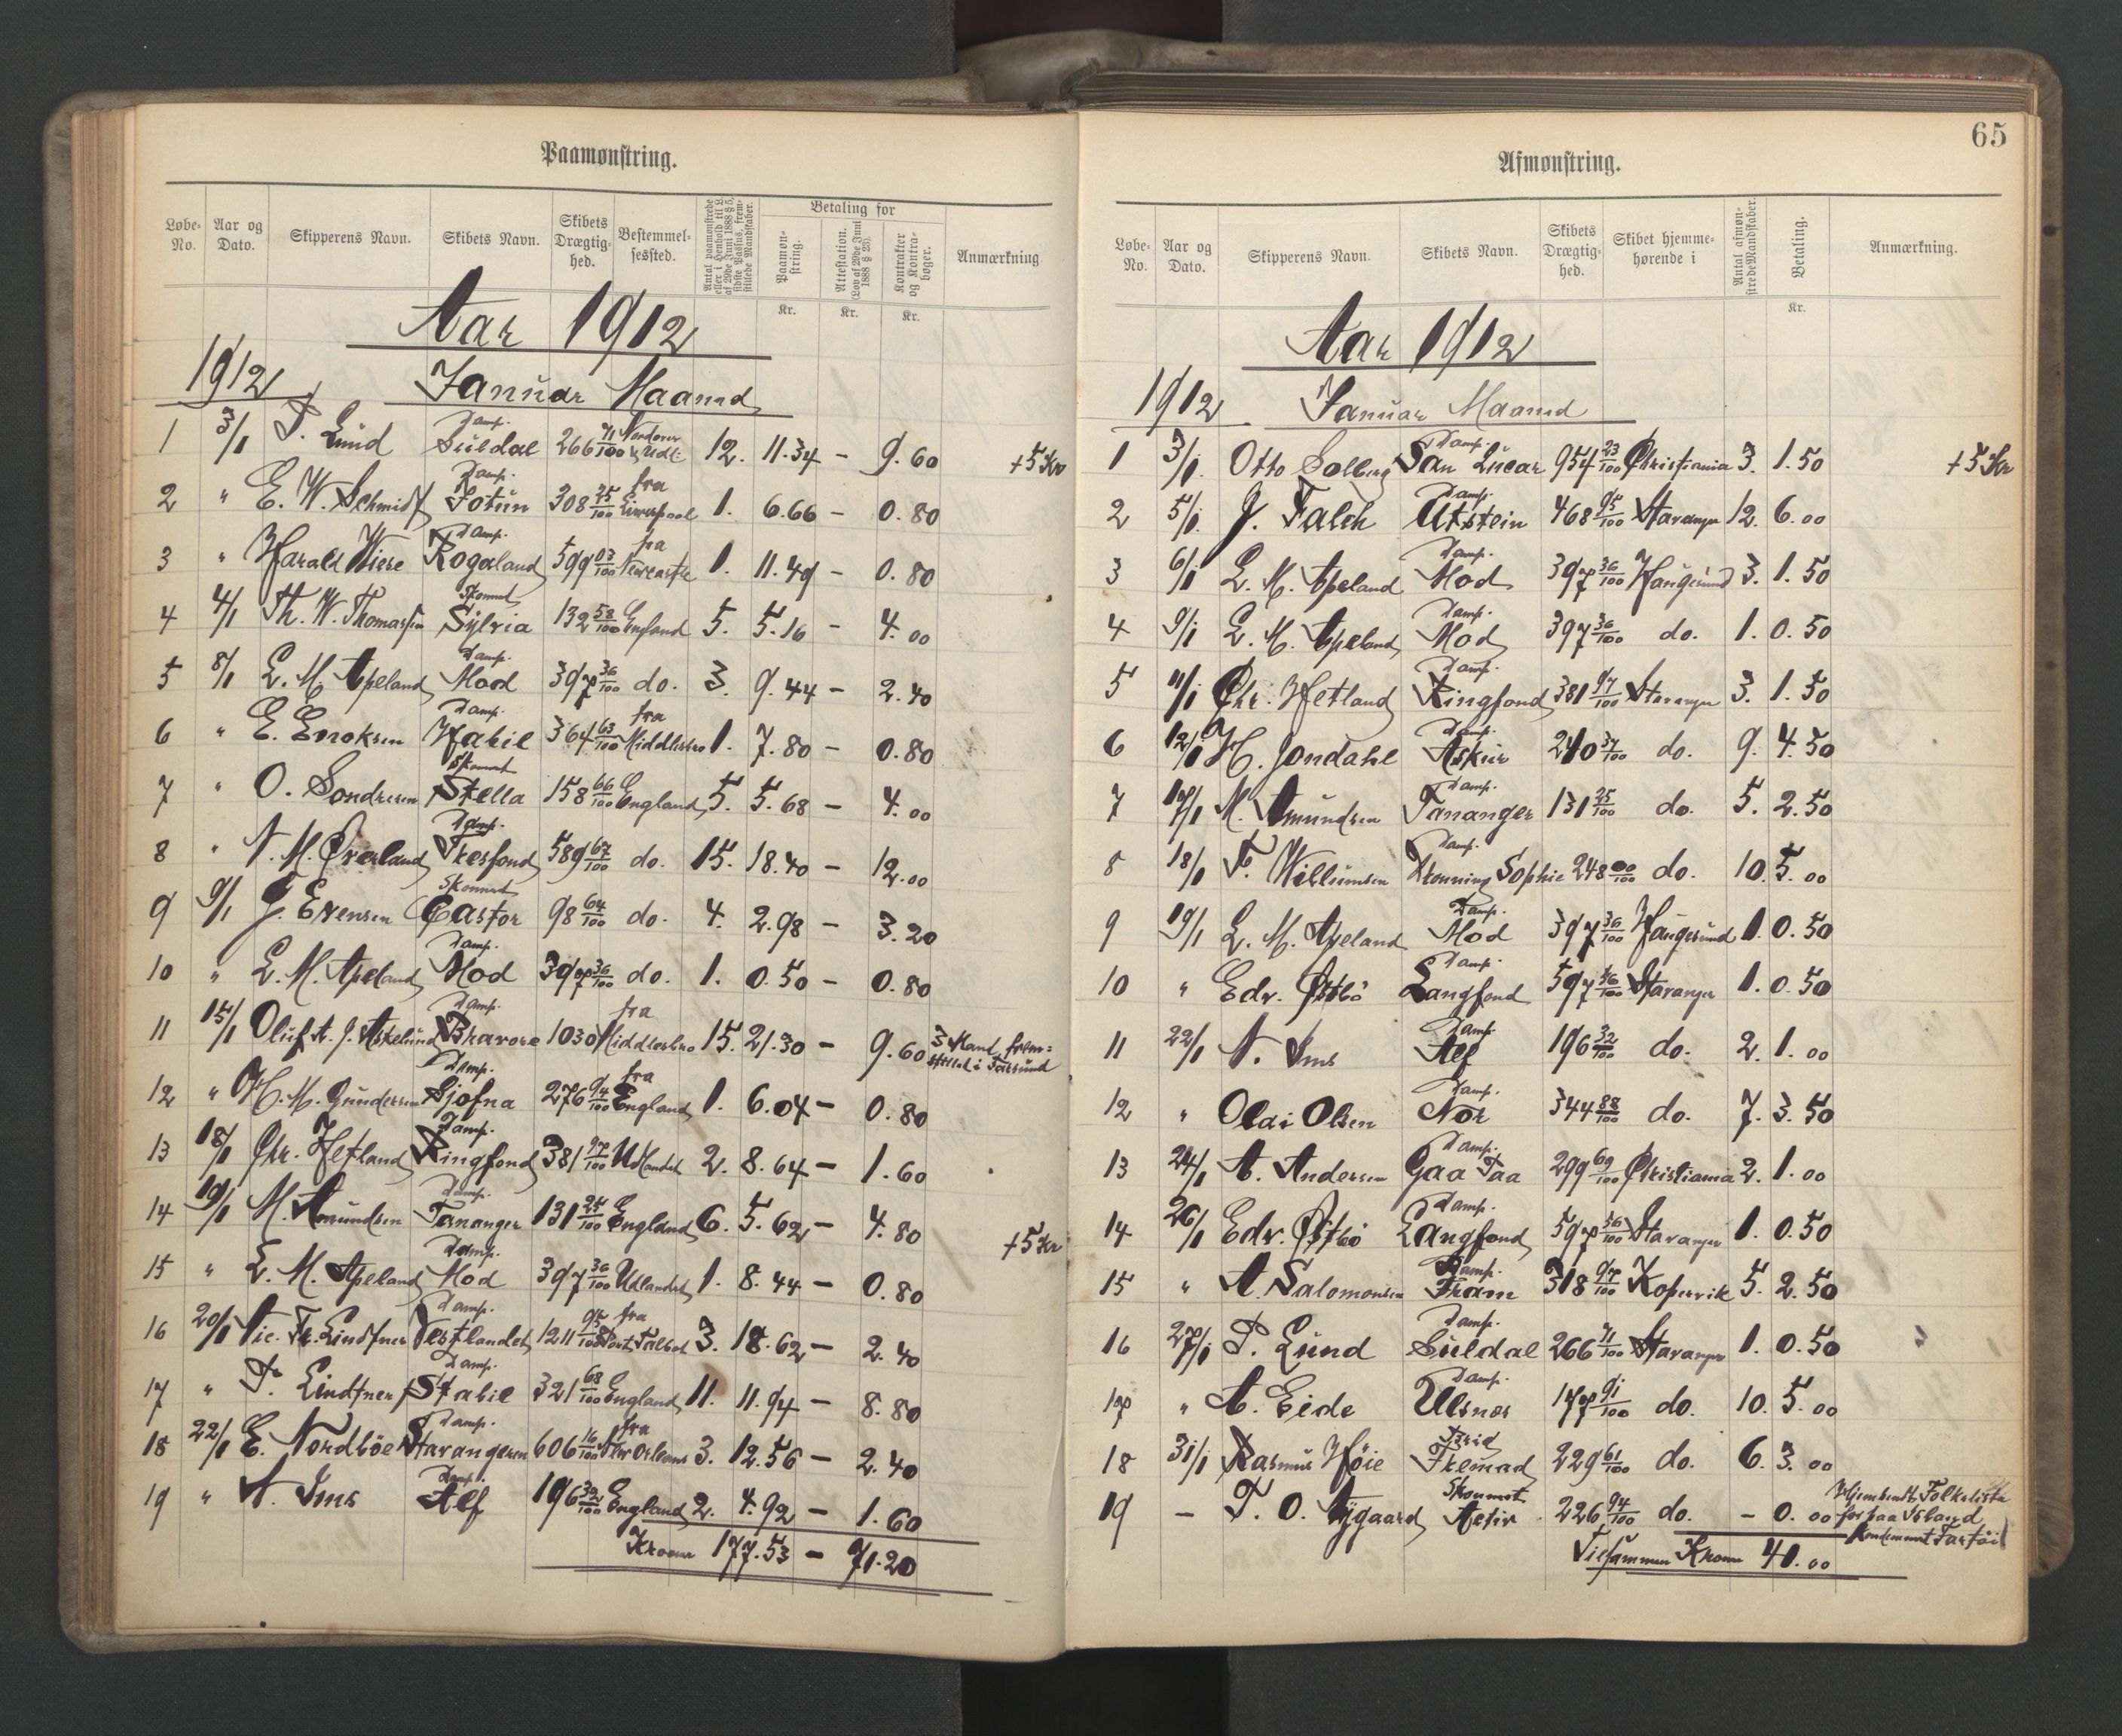 Paamønstring.
Løbe-No. Aar og Dato. Skipperens Navn. Skibets Navn. Skibets Drægtig-hed. Bestemmel-sessted. Antal paamønstrede eller i Henhold til L. af 29de Juni 1888 § 5, sidste Passus, frem-stillede Mandskaber. Betaling for Paamøn-string. Attestation. (Lov af 29de Juni 1888 § 23). Kontrakter og Kontra-bøger. Anmærkning
Kr. Kr. Kr.
Aar 1912
1912 Januar Maaned
1 3/1 P. Lund Damp. Suldal 266 71/100 12. 11.34 – 9.60 +5 Kr
2 " E. W. Schmidt Damp. Jotun 308 25/100 fra Liverpool 1. 6.66 – 0.80
3 " Harald Wiese Damp. Rogaland 599 03/100 fra Newcastle 1. 11.49 – 0.80
4 4/1 Th. W. Thomassen Skonnert Sylvia 132 58/100 England 5. 5.16 – 4.00
5 8/1 L. M. Apeland Damp. Mod 397 36/100 do. 3. 9.44 – 2.40
6 " E. Enoksen Damp. Habil 364 63/100 fra Middlesbro 1. 7.80 – 0.80
7 " O. Sondresen Skonnert Stella 158 66/100 England 5. 5.68 – 4.00
8 " N. M. Øverland Damp. Skesfond 589 67/100 do. 15. 18.40 – 12.00
9 9/1 J. Evensen Skonnert Castor 98 64/100 do. 4. 2.98 – 3.20
10 " L. M. Apeland Damp. Mod 397 36/100 do. 1. 0.50 – 0.80
11 15/1 Oluf A. J. Askelund Damp. Bravore 1030 fra Middlesbro 15. 21.30 – 9.60 3 Mand frem=stillet i Farsund
12 " H. M. Gundersen Damp. Sjofna 276 94/100 fra England 1. 6.04 – 0.80
13 18/1 Chr. Hetland Damp. Ringfond 381 97/100 Udlandet 2. 8.64 – 1.60
14 19/1 M. Amundsen Damp. Tananger 131 25/100 England 6. 5.62 – 4.80 +5 Kr
15 " L. M. Apeland Damp. Mod 397 36/100 Udlandet 1. 8.44 – 0.80
16 20/1 Nic. Fr. Lindtner Damp. Vestlandet 1211 95/100 fra Port Talbot 3. 18.62 – 2.40
17 " F. Lindtner Damp. Stabil 321 68/100 England 11. 11.94 – 8.80
18 22/1 E. Nordbøe Damp. Stavangeren 606 16/100 fra New Orleans 3. 12.56 – 2.40
19 " A. Ims Damp. Alf 196 32/100 England 2. 4.92 – 1.60
Kroner 177.53 – 71.20
65
Afmønstring.
Løbe-No. Aar og Dato. Skipperens Navn. Skibets Navn. Skibets Drægtig-hed. Skibet hjemme-hørende i Antal afmøn-strede Mandskaber. Betaling. Anmærkning.
Kr.
Aar 1912
1912 Januar Maaned
1 3/1 Otto Solberg Damp. San Lucar 954 23/100 Christiania 3. 1.50 +5 Kr
2 5/1 J. Falch Damp. Utstein 468 95/100 Stavanger 12. 6.00
3 6/1 L. M. Apeland Damp. Mod 397 36/100 Haugesund 3. 1.50
4 9/1 L. M. Apeland Damp. Mod 397 36/100 do. 1. 0.50
5 11/1 Chr. Hetland Damp. Ringfond 381 97/100 Stavanger 3. 1.50
6 12/1 H. Jondahl Damp. Askur 240 37/100 do. 9. 4.50
7 17/1 M. Amundsen Damp. Tananger 131 25/100 do. 5. 2.50
8 18/1 F. Willumsen Damp. Dronning Sophie 248 00/100 do. 10. 5.00
9 19/1 L. M. Apeland Damp. Mod 397 36/100 Haugesund 1. 0.50
10 " Edv. Østbö Damp. Langfond 597 56/100 Stavanger 1. 0.50
11 22/1 A. Ims Damp. Alf 196 32/100 do. 2. 1.00
12 " Olai Olsen Damp. Nor 344 88/100 do. 7. 3.50
13 24/1 A. Andersen Damp. Gaa Paa 299 69/100 Christiania 2. 1.00
14 26/1 Edv. Østbö Damp. Langfond 597 56/100 Stavanger 1. 0.50
15 " A. Salomonsen Damp. Fram 318 97/100 Kopervik 5. 2.50
16 27/1 P. Lund Damp. Suldal 266 71/100 Stavanger 1. 0.50
17 " A. Eide Damp. Ulsnes 177 91/100 do. 10. 5.00
18 31/1 Rasmus Höie 229 61/100 do. 6. 3.00
19 – T. O. Nygaard Skonnert Activ 226 94/100 do. – 0.00 Hjemsendt Folkeliste for paa Island Kondemneret Fartöi
Tilsammen Kroner 40.00